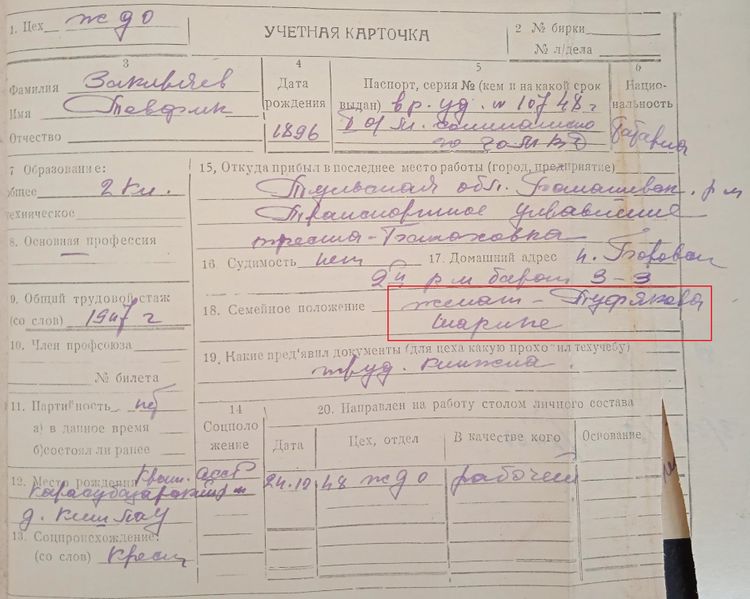 1. Цех ждо
УЧЕТНАЯ КАРТОЧКА
2 № бирки
№ л/дела
3
Фамилия Заклычев
Имя Тевфик
Отчество
4
Дата рождения
1896
5
Паспорт, серия № (кем и на какой срок
выдан) вр. уд. № 10748 г
6
Нацио-
нальность
7 Образование:
общее 2 кл.
техническое
8. Основная профессия
—
9. Общий трудовой стаж
(со слов) 1947 г
10. Член профсоюза
№ билета
11. Партийность нет
а) в данное время
б) состоял ли ранее
12. Место рождения Крым. АССР
д.
13. Соцпроисхождение:
(со слов) крест
15. Откуда прибыл в последнее место работы (город, предприятие)
Тульская обл. р-н
Транспортное управление
треста
16. Судимость нет
17. Домашний адрес п.
3-3
18. Семейное положение женат - Туфякова
Шарипе
19. Какие пред'явил документы (для цеха какую прохо ил техучебу)
труд. книжка.
14
Соцполо
жение
20. Направлен на работу столом личного состава
Дата
Цех, отдел
В качестве кого
Основание
24.10.48 ждо рабочей